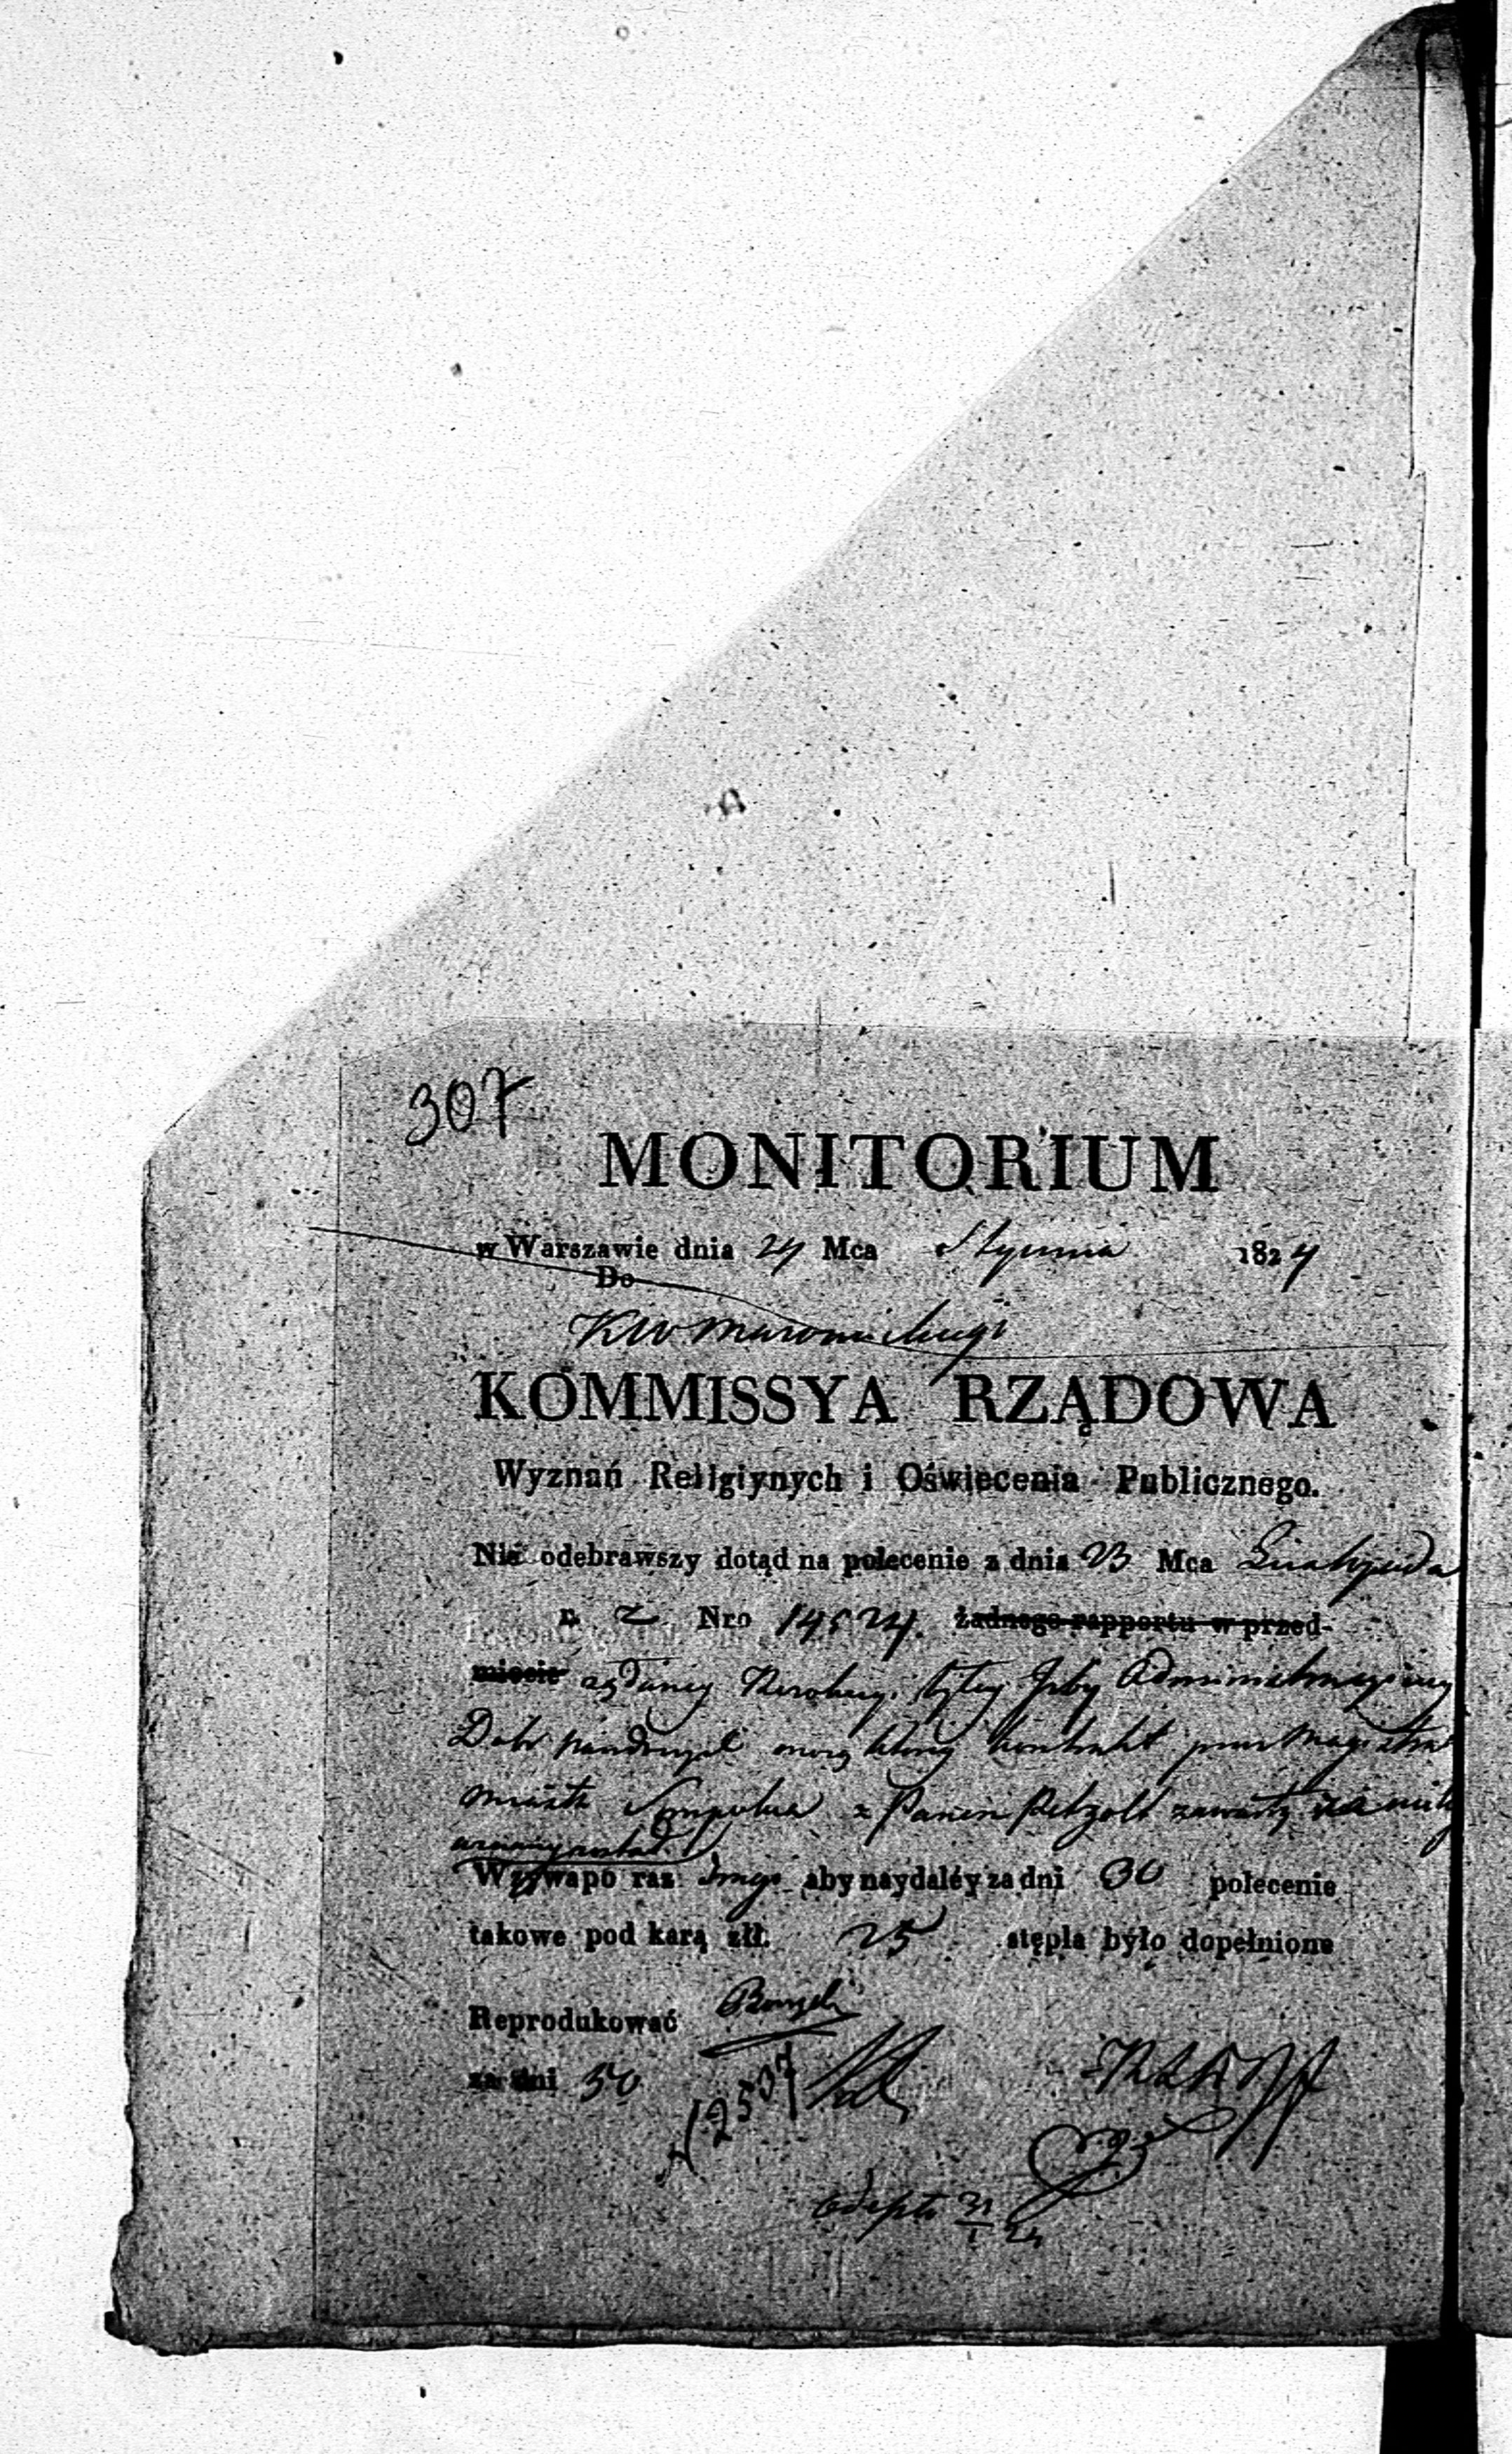 307
MONITORIUM
w Warszawie dnia 24 Mca Stycznia 1824
Do
KW Mazowieckiego
KOMMISSYA RZĄDOWA
Wyznań Religiynych i Oświecenia Publicznego.
Nie odebrawszy dotąd na polecenie z dnia 23 Mca Listopada
r. z. Nro 14524. żadnego rapportu w przed-
miocie żądaney Izby
Dóbr mocą którey kontrakt przez Magistrat
miasta Sompolna z Panem Petzolt zawarty
uznany został.
Wzywa po raz drugi aby naydaléy za dni 30 polecenie
takowe pod karą złł. 25 stępla było dopełnione
Reprodukować
za dni 30
12537
31